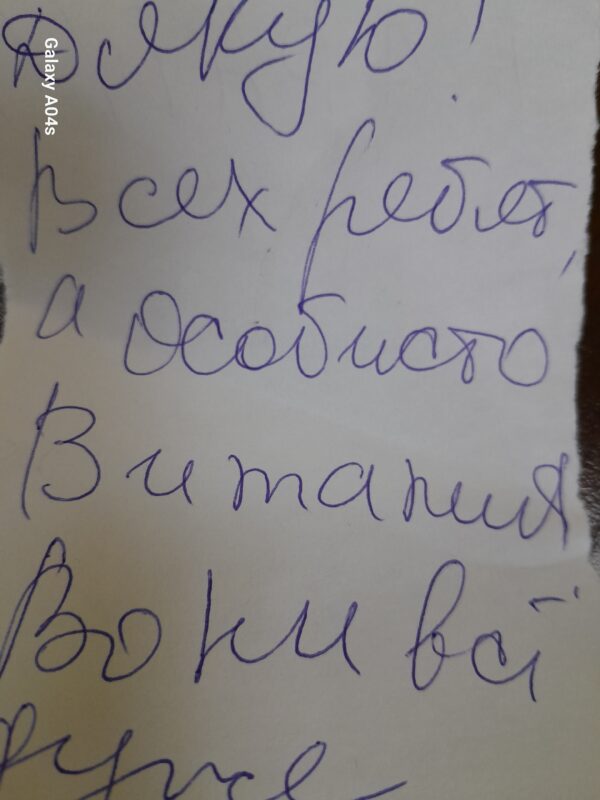 Дякую!
Всех ребят,
а особисто
Виталия
Вони всі
дуже
Galaxy A04s